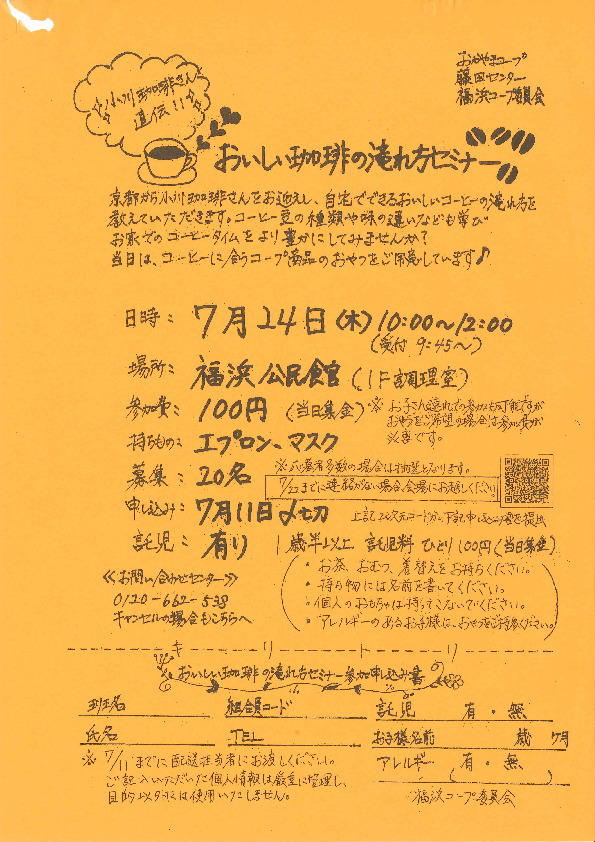 小川珈琲さん
直伝!!
おかやまコープ
藤田センター
福浜コープ委員会
おいしい珈琲の淹れ方セミナー
京都から小川珈琲さんをお迎えし、自宅でできるおいしいコーヒーの淹れ方を
教えていただきます。コーヒー豆の種類や味の違いなども学び
お家でのコーヒータイムをより豊かにしてみませんか?
当日は、コーヒーに合うコープ商品のおやつをご用意しています♪
日時: 7月24日(木) 10:00〜12:00
(受付 9:45〜)
場所: 福浜公民館(1F調理室)
参加費: 100円 (当日集金) ※お子さん連れでの参加も可能ですが
おやつをご希望の場合は参加費が
必要です。
持ちもの: エプロン、マスク
募集: 20名 ※応募者多数の場合は抽選となります。
7/22までに連絡がない場合、会場にお越しください。
申し込み: 7月11日〆切 上記2次元コードか、下記申し込み書を提出
託児: 有り 1歳半以上 託児料 ひとり100円(当日集金)
・お茶、おむつ、着替えをお持ちください。
・持ち物には名前を書いてください。
・個人のおもちゃは持ってこないでください。
・アレルギーのあるお子様は、おやつをご持参ください。
≪お問い合わせセンター≫
0120-662-538
キャンセルの場合もこちらへ
キリトリ
おいしい珈琲の淹れ方セミナー参加申し込み書
班名 組合員コード 託児 有・無
氏名 TEL お子様名前 歳 ヶ月
※7/11までに配送担当者にお渡しください。 アレルギー 有・無
ご記入いただいた個人情報は厳重に管理し、 ( )
目的以外には使用いたしません。 福浜コープ委員会